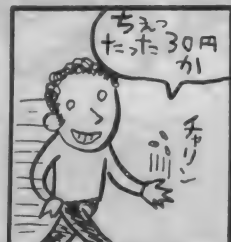 ちぇっ
たった30円
か
チャリン